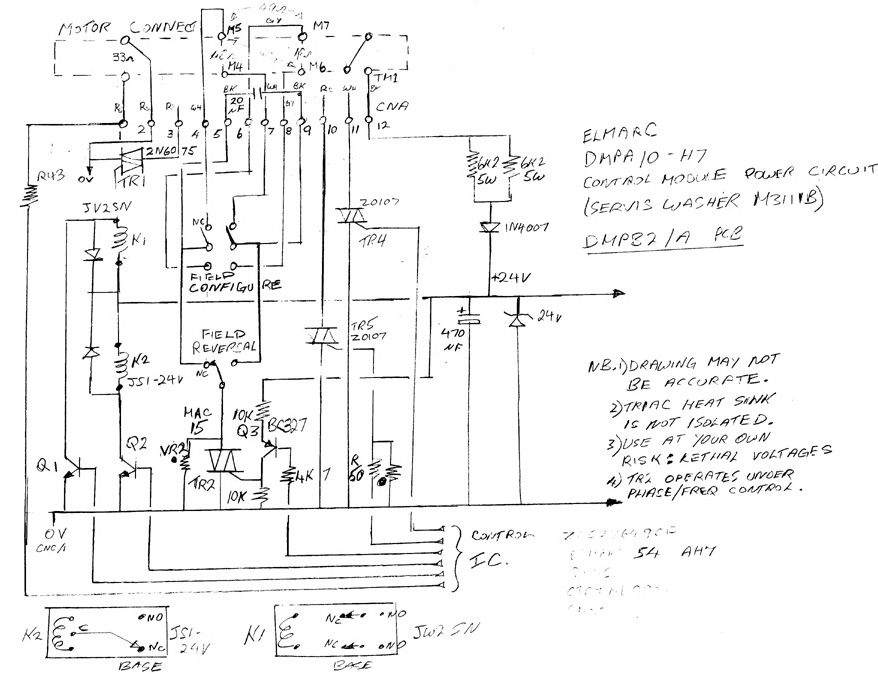 MOTOR CONNECT
M5
M7
33Ω
M4
M6
TM1
CNA
BK
WH
BK
20 NF
GY
2
3
4
5
6
7
8
9
10
11
12
ELMARC
DMPA10-H7
CONTROL MODULE POWER CIRCUIT
(SERVIS WASHER M3111B)
DMPB2/A PCB
R43
0V
2N6075
TR1
6K2 5W
6K2 5W
1N4007
JV2SN
K1
NC
Z0107
TR4
+24V
FIELD CONFIGURE
470 NF
24V
FIELD REVERSAL
NC
TR5
Z0107
K2
JS1-24V
MAC 15
10K
Q3
BC327
VR2
TR2
10K
4K7
Q1
Q2
NB.1)DRAWING MAY NOT
BE ACCURATE.
2)TRIAC HEAT SINK
IS NOT ISOLATED.
3)USE AT YOUR OWN
RISK: LETHAL VOLTAGES
4) TR2 OPERATES UNDER
PHASE/FREQ CONTROL.
0V
CNC/1
CONTROL
I.C.
54 AH7
K2
C
NO
NC
JS1-
24V
BASE
K1
NC
NO
NC
NO
JW2SN
BASE